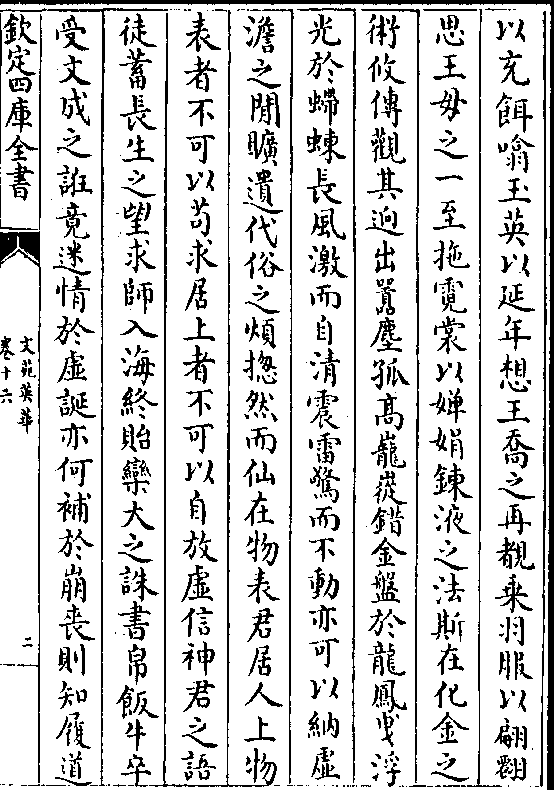 以充餌噏玉英以延年想王喬之再覩乗羽服以翩翾
思王母之一至拖霓裳以嬋娟鍊液之法斯在化金之
術攸傳觀其逈出囂塵孤高巃嵸錯金盤於龍鳳曵浮
光於蝃蝀長風激而自清震雷驚而不動亦可以納虛
澹之閒曠遺代俗之煩揔然而仙在物表君居人上物
表者不可以苟求居上者不可以自放虛信神君之語
徒蓄長生之望求師入海終貽欒大之誅書帛飯牛卒
受文成之誑竟迷情於虛誕亦何補於崩喪則知履道
欽定四庫全書
文苑英華
卷十六
二